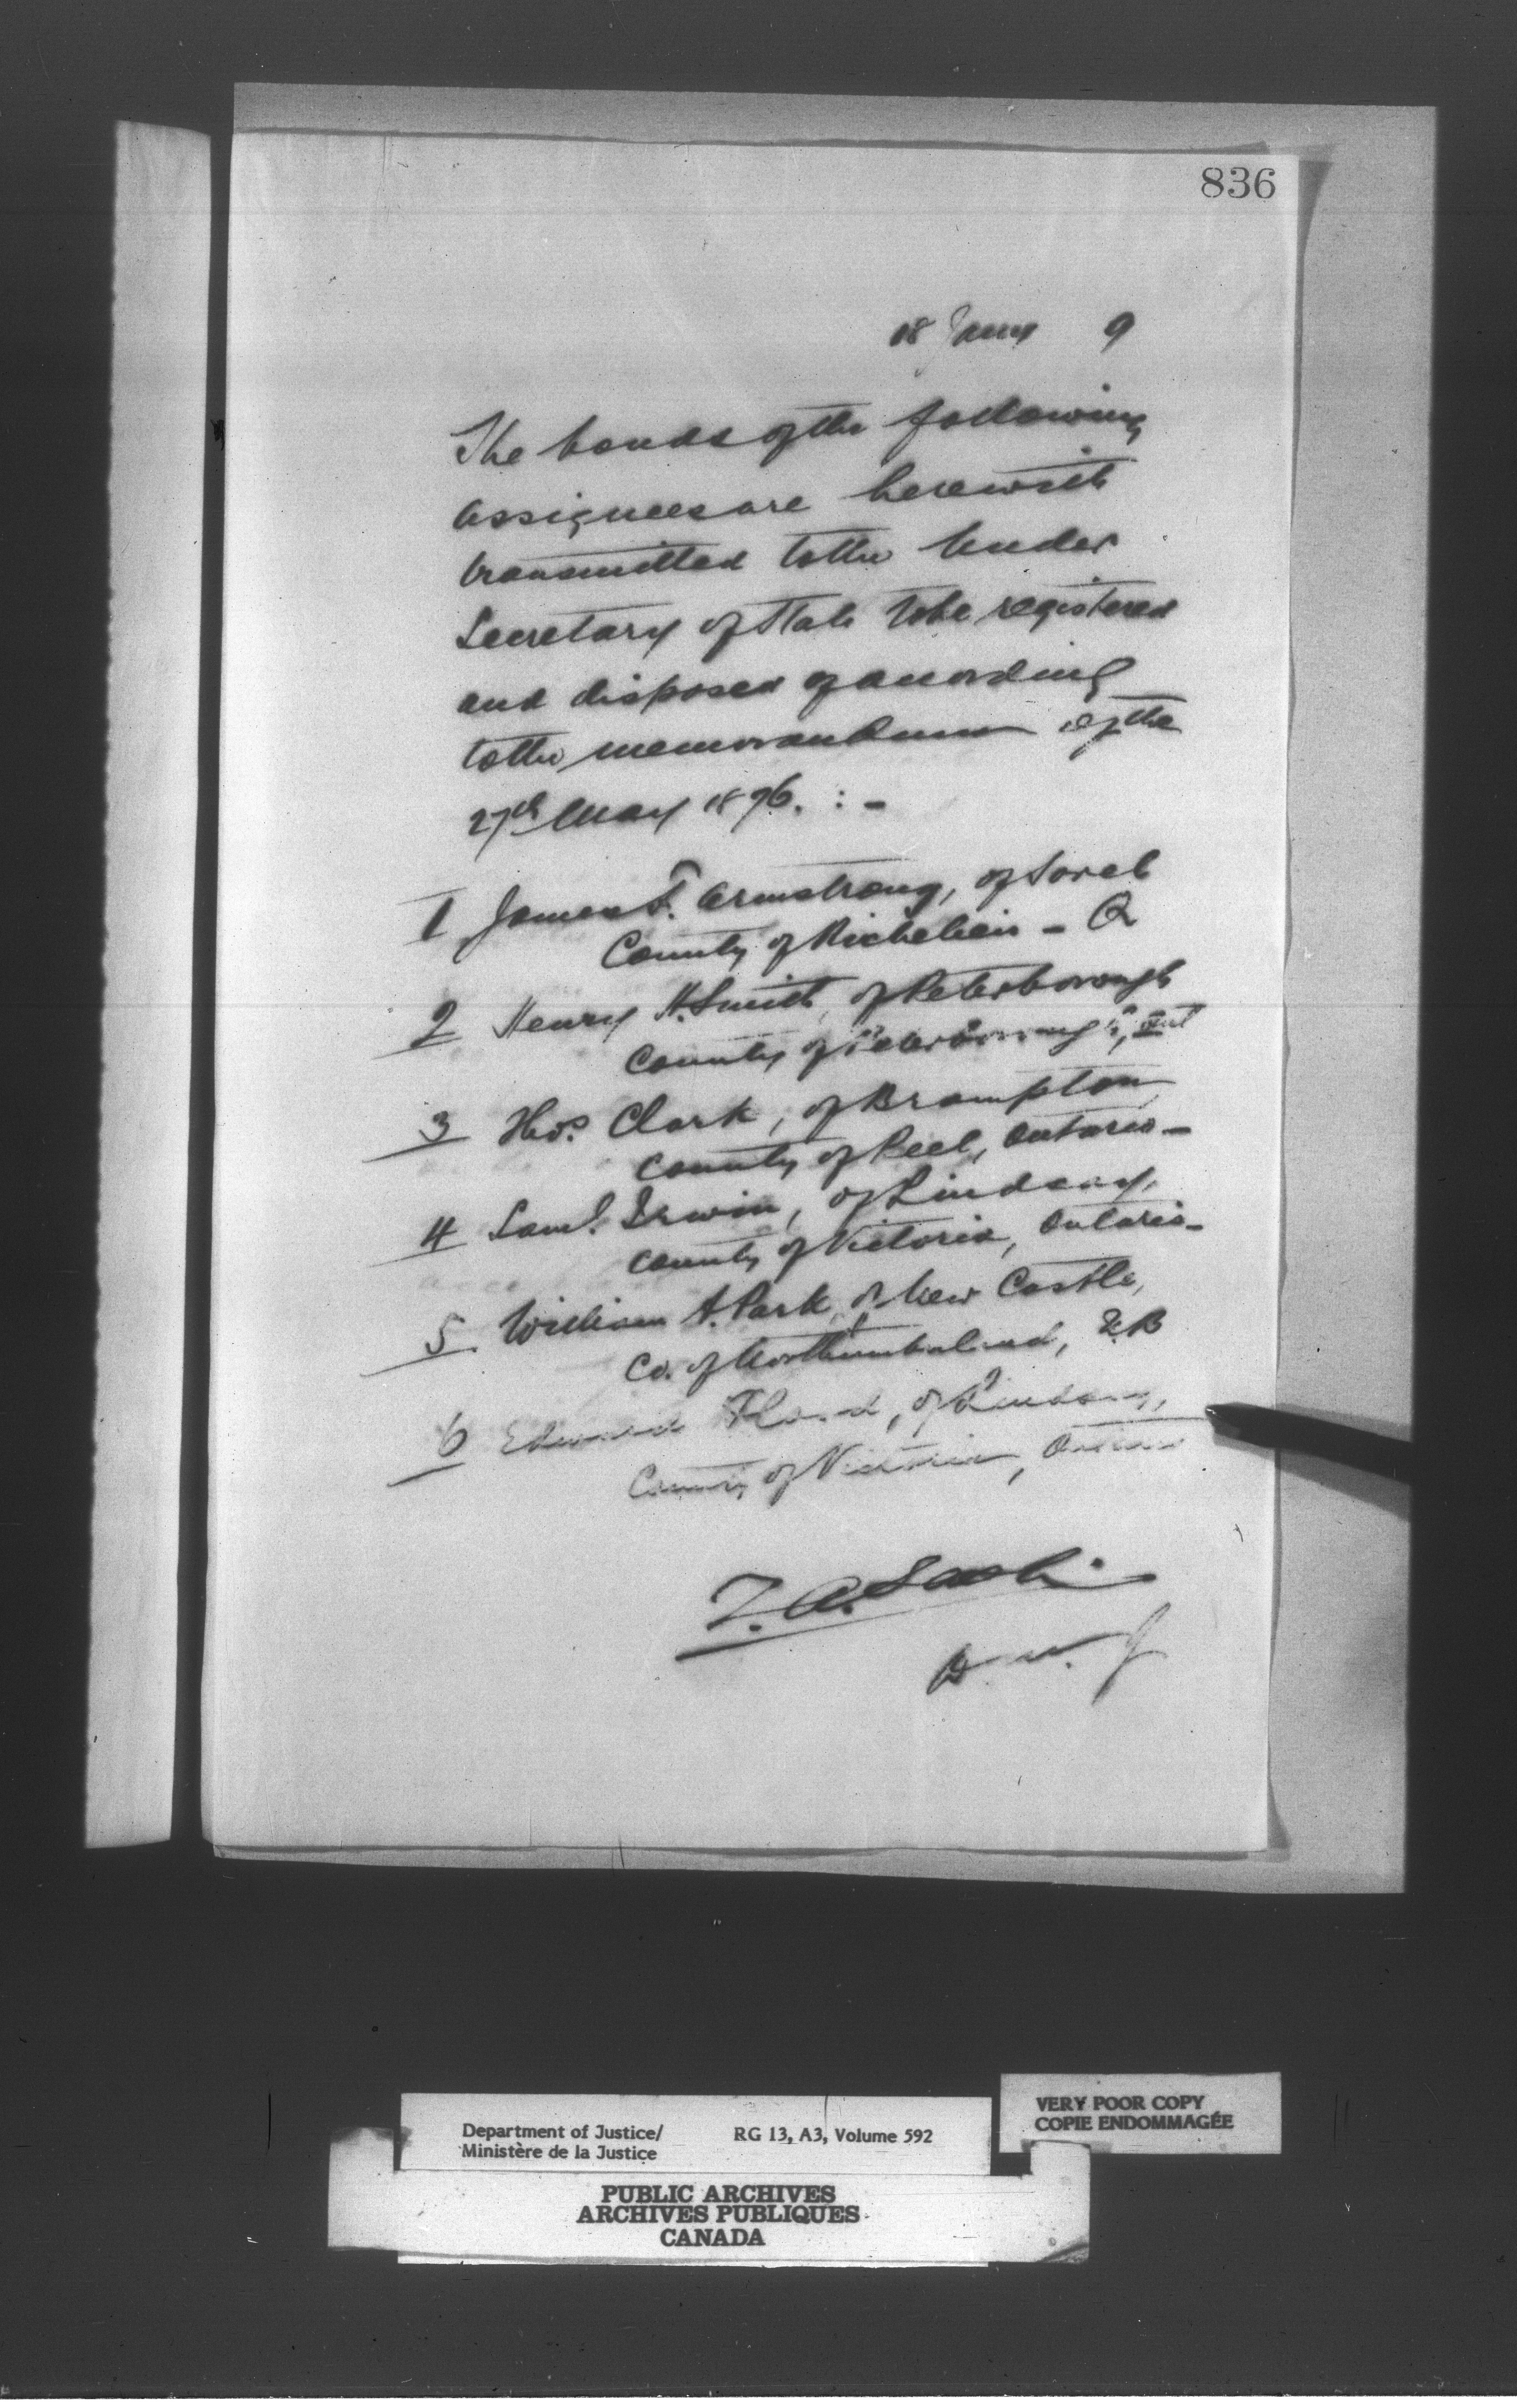 836
18 Jany 9
The bonds of the following
assignees are herewith
transmitted to the Under
Secretary of State to be registered
and disposed of according
to the memorandum of the
27th May 1876. : -
1 James F. Armstrong, of Sorel
County of Richelieu - Q
2 Henry H. Smith, of Peterborough
County of Peterborough, Ont
3 Thos. Clark, of Brampton
County of Peel, Ontario -
4 Saml. Irwin, of Lindsay,
County of Victoria, Ontario -
5. William A. Park, of New Castle,
Co. of Northumberland, N.B
6 Edward , of Lindsay,
County of Victoria, Ontario
Z. A. Lash
D. M. J
Department of Justice/
Ministère de la Justice
RG 13, A3, Volume 592
VERY POOR COPY
COPIE ENDOMMAGÉE
PUBLIC ARCHIVES
ARCHIVES PUBLIQUES
CANADA